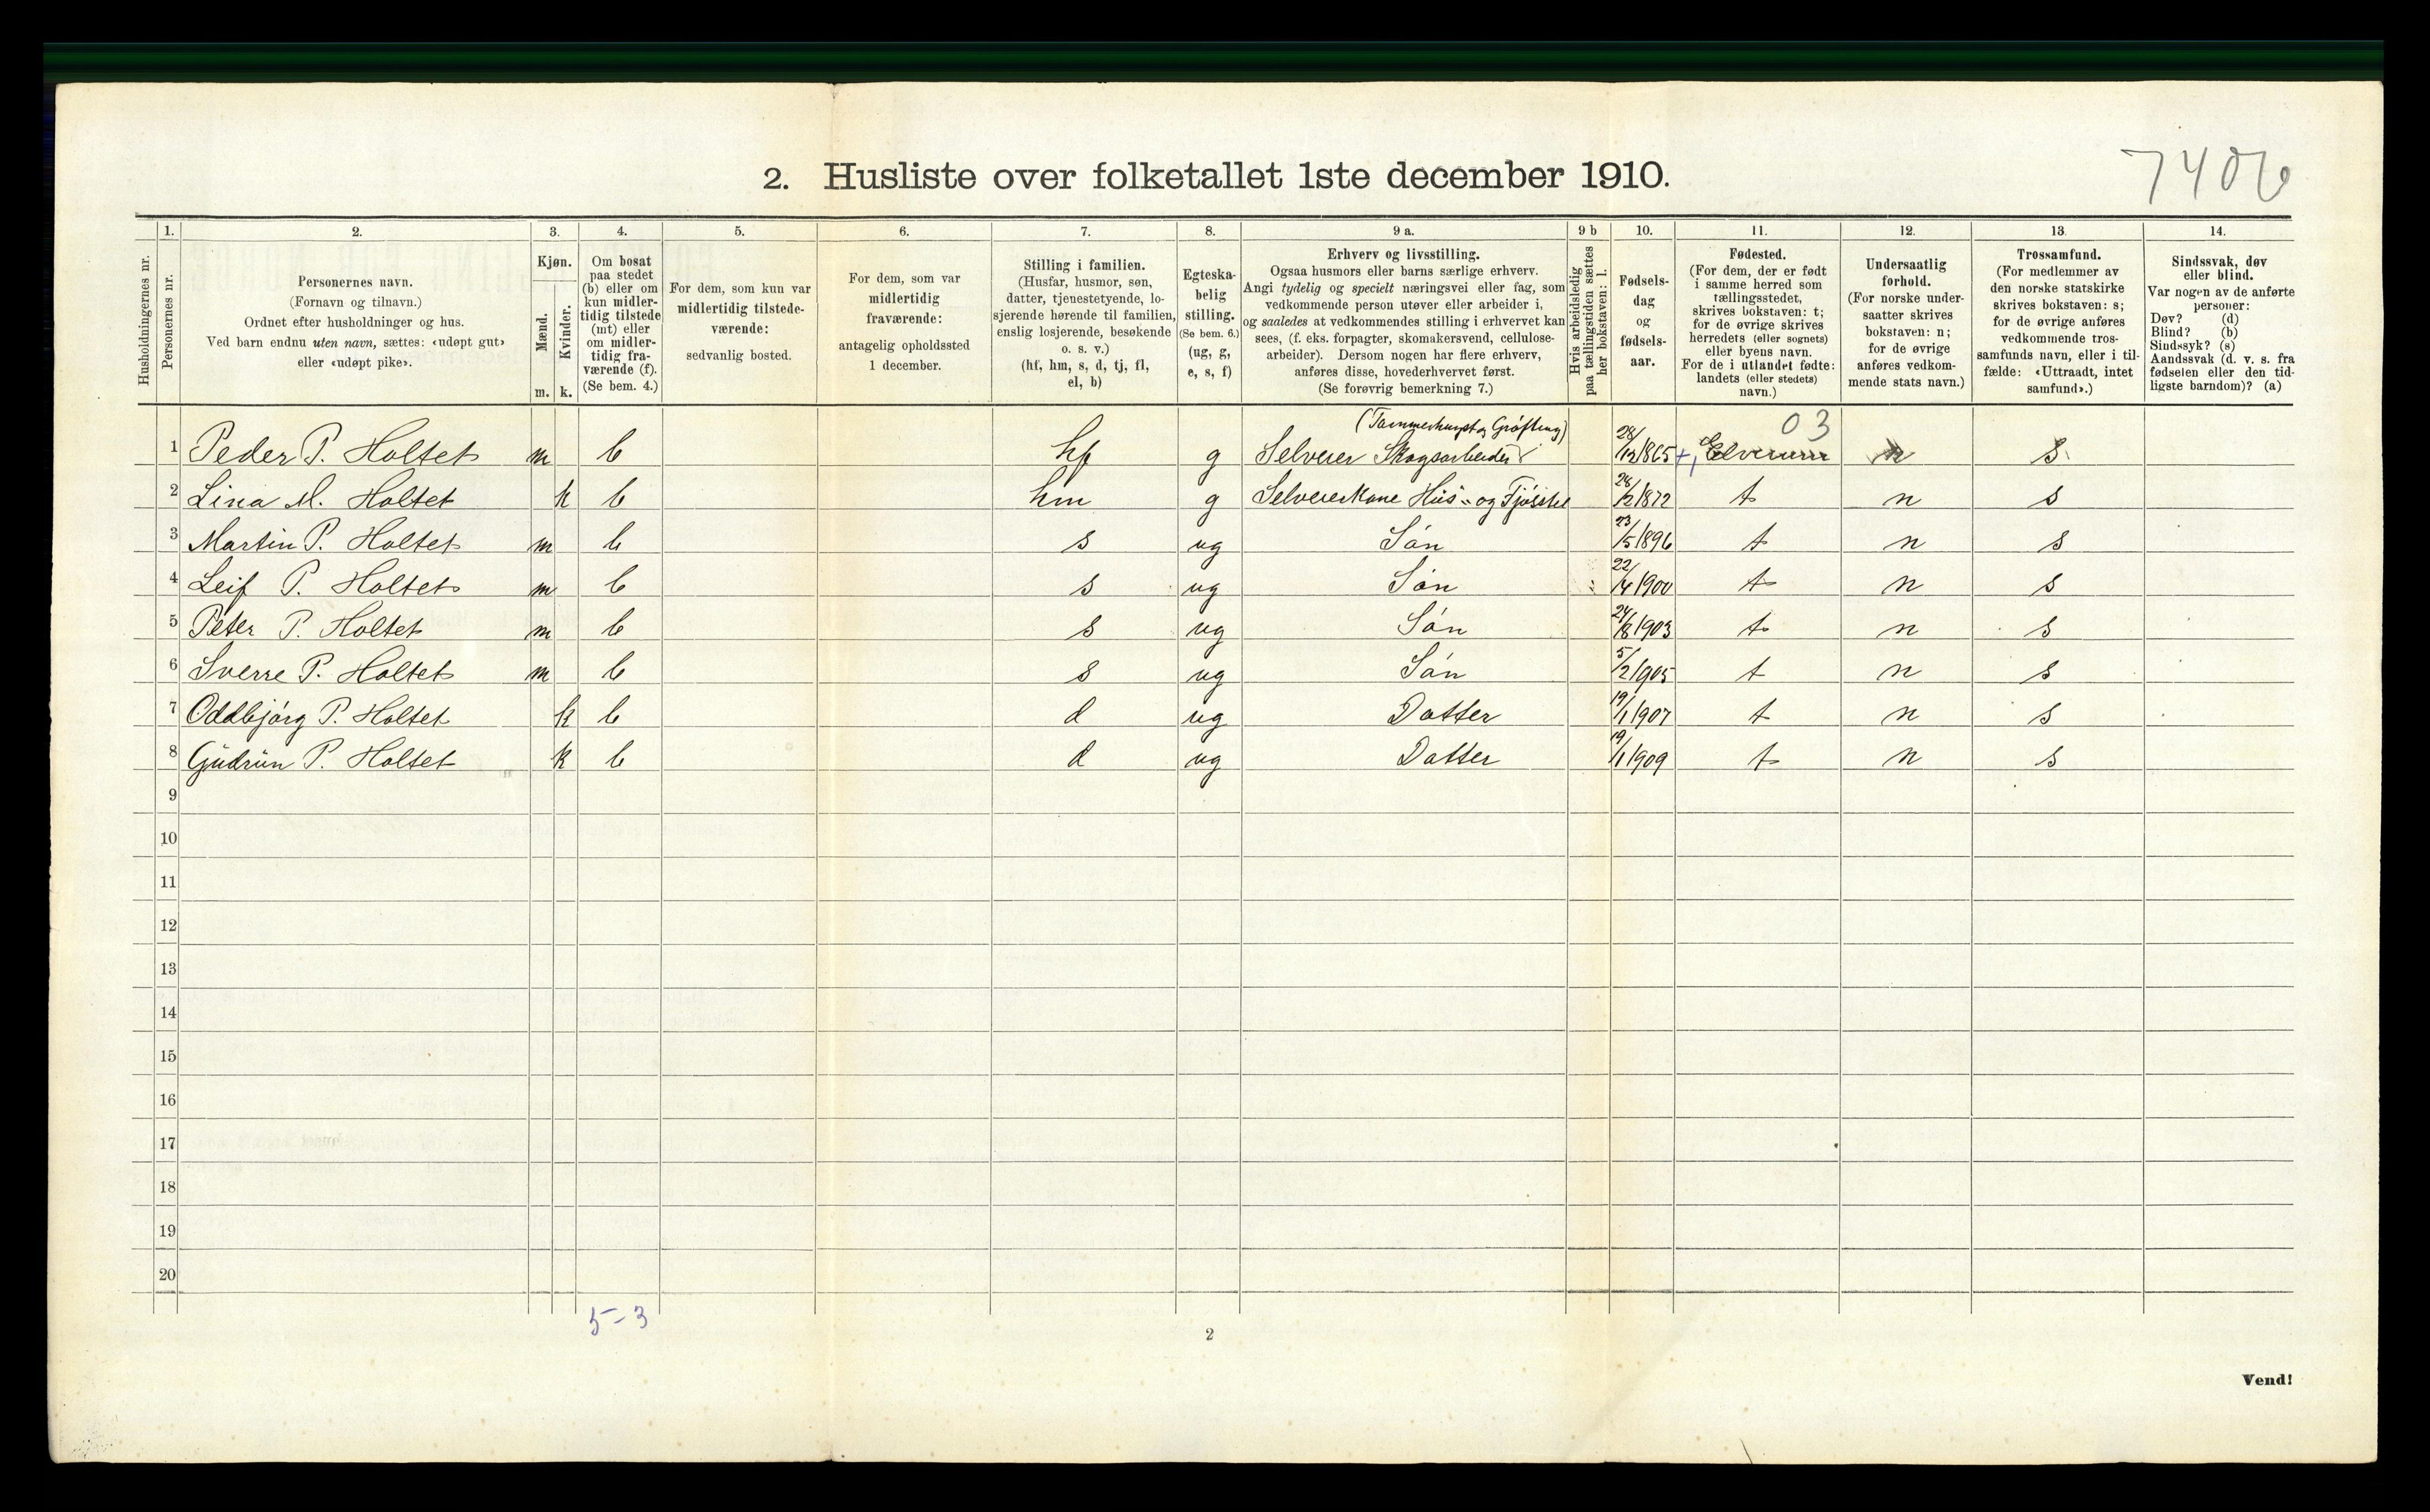 7406
2. Husliste over folketallet 1ste december 1910.
Husholdningernes nr.
1.
Personernes nr.
2.
Personernes navn.
(Fornavn og tilnavn.)
Ordnet efter husholdninger og hus.
Ved barn endnu uten navn, sættes: «udøpt gut»
eller «udøpt pike».
3.
Kjøn.
Mænd.
m.
Kvinder.
k.
4.
Om bosat
paa stedet
(b) eller om
kun midler-
tidig tilstede
(mt) eller
om midler-
tidig fra-
værende (f).
(Se bem. 4.)
5.
For dem, som kun var
midlertidig tilstede-
værende:
sedvanlig bosted.
6.
For dem, som var
midlertidig
fraværende:
antagelig opholdssted
1 december.
7.
Stilling i familien.
(Husfar, husmor, søn,
datter, tjenestetyende, lo-
sjerende hørende til familien,
enslig losjerende, besøkende
o. s. v.)
(hf, hm, s, d, tj, fl,
el, b)
8.
Egteska-
belig
stilling.
(Se bem. 6.)
(ug, g,
e, s, f)
9 a.
Erhverv og livsstilling.
Ogsaa husmors eller barns særlige erhverv.
Angi tydelig og specielt næringsvei eller fag, som
vedkommende person utøver eller arbeider i,
og saaledes at vedkommendes stilling i erhvervet kan
sees, (f. eks. forpagter, skomakersvend, cellulose-
arbeider). Dersom nogen har flere erhverv,
anføres disse, hovederhvervet først.
(Se forøvrig bemerkning 7.)
9 b
Hvis arbeidsledig
paa tællingstiden sættes
her bokstaven: l.
10.
Fødsels-
dag
og
fødsels-
aar.
11.
Fødested.
(For dem, der er født
i samme herred som
tællingsstedet,
skrives bokstaven: t;
for de øvrige skrives
herredets (eller sognets)
eller byens navn.
For de i utlandet fødte:
landets (eller stedets)
navn.)
12.
Undersaatlig
forhold.
(For norske under-
saatter skrives
bokstaven: n;
for de øvrige
anføres vedkom-
mende stats navn.)
13.
Trossamfund.
(For medlemmer av
den norske statskirke
skrives bokstaven: s;
for de øvrige anføres
vedkommende tros-
samfunds navn, eller i til-
fælde: «Uttraadt, intet
samfund».)
14.
Sindssvak, døv
eller blind.
Var nogen av de anførte
personer:
Døv? (d)
Blind? (b)
Sindssyk? (s)
Aandssvak (d. v. s. fra
fødselen eller den tid-
ligste barndom)? (a)
(Tømmerhugst og Grøfting) 03
1 Peder P. Holtet m b hf g Selveier Skogsarbeider 28/12 1865 t, Elverum n s
2 Lina M. Holtet k b hm g Selveierkone Hus- og Fjøsstel /2 1872 t n s
3 Martin P. Holtet m b s ug Søn 23/5 1896 t n s
4 Leif P. Holtet m b s ug Søn 22/4 1900 t n s
5 Peter P. Holtet m b s ug Søn 24/8 1903 t n s
6 Sverre P. Holtet m b s ug Søn 5/2 1905 t n s
7 Oddbjørg P. Holtet k b d ug Datter 19/1 1907 t n s
8 Gudrun P. Holtet k b d ug Datter 19/1 1909 t n s
9
10
11
12
13
14
15
16
17
18
19
20
5-3
2
Vend!